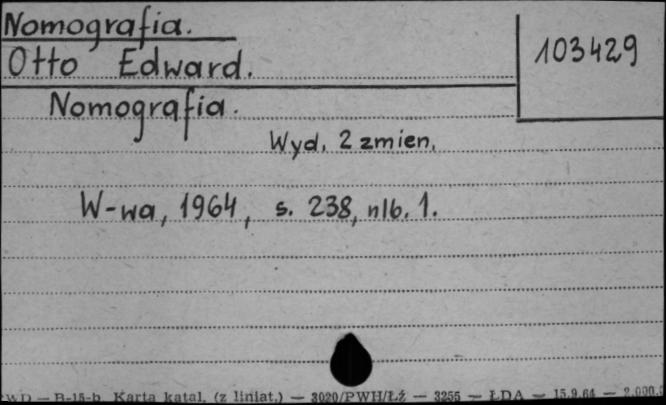 Nomografia.
103429
Otto Edward.
Nomografia.
Wyd. 2 zmien.
W-wa, 1964, s. 238, nlb. 1.
WD — B-15-b Karta katal. (z liniat.) — 3020/PWH/Łź — 3255 — ŁDA — 15.9.64 — 2.000.